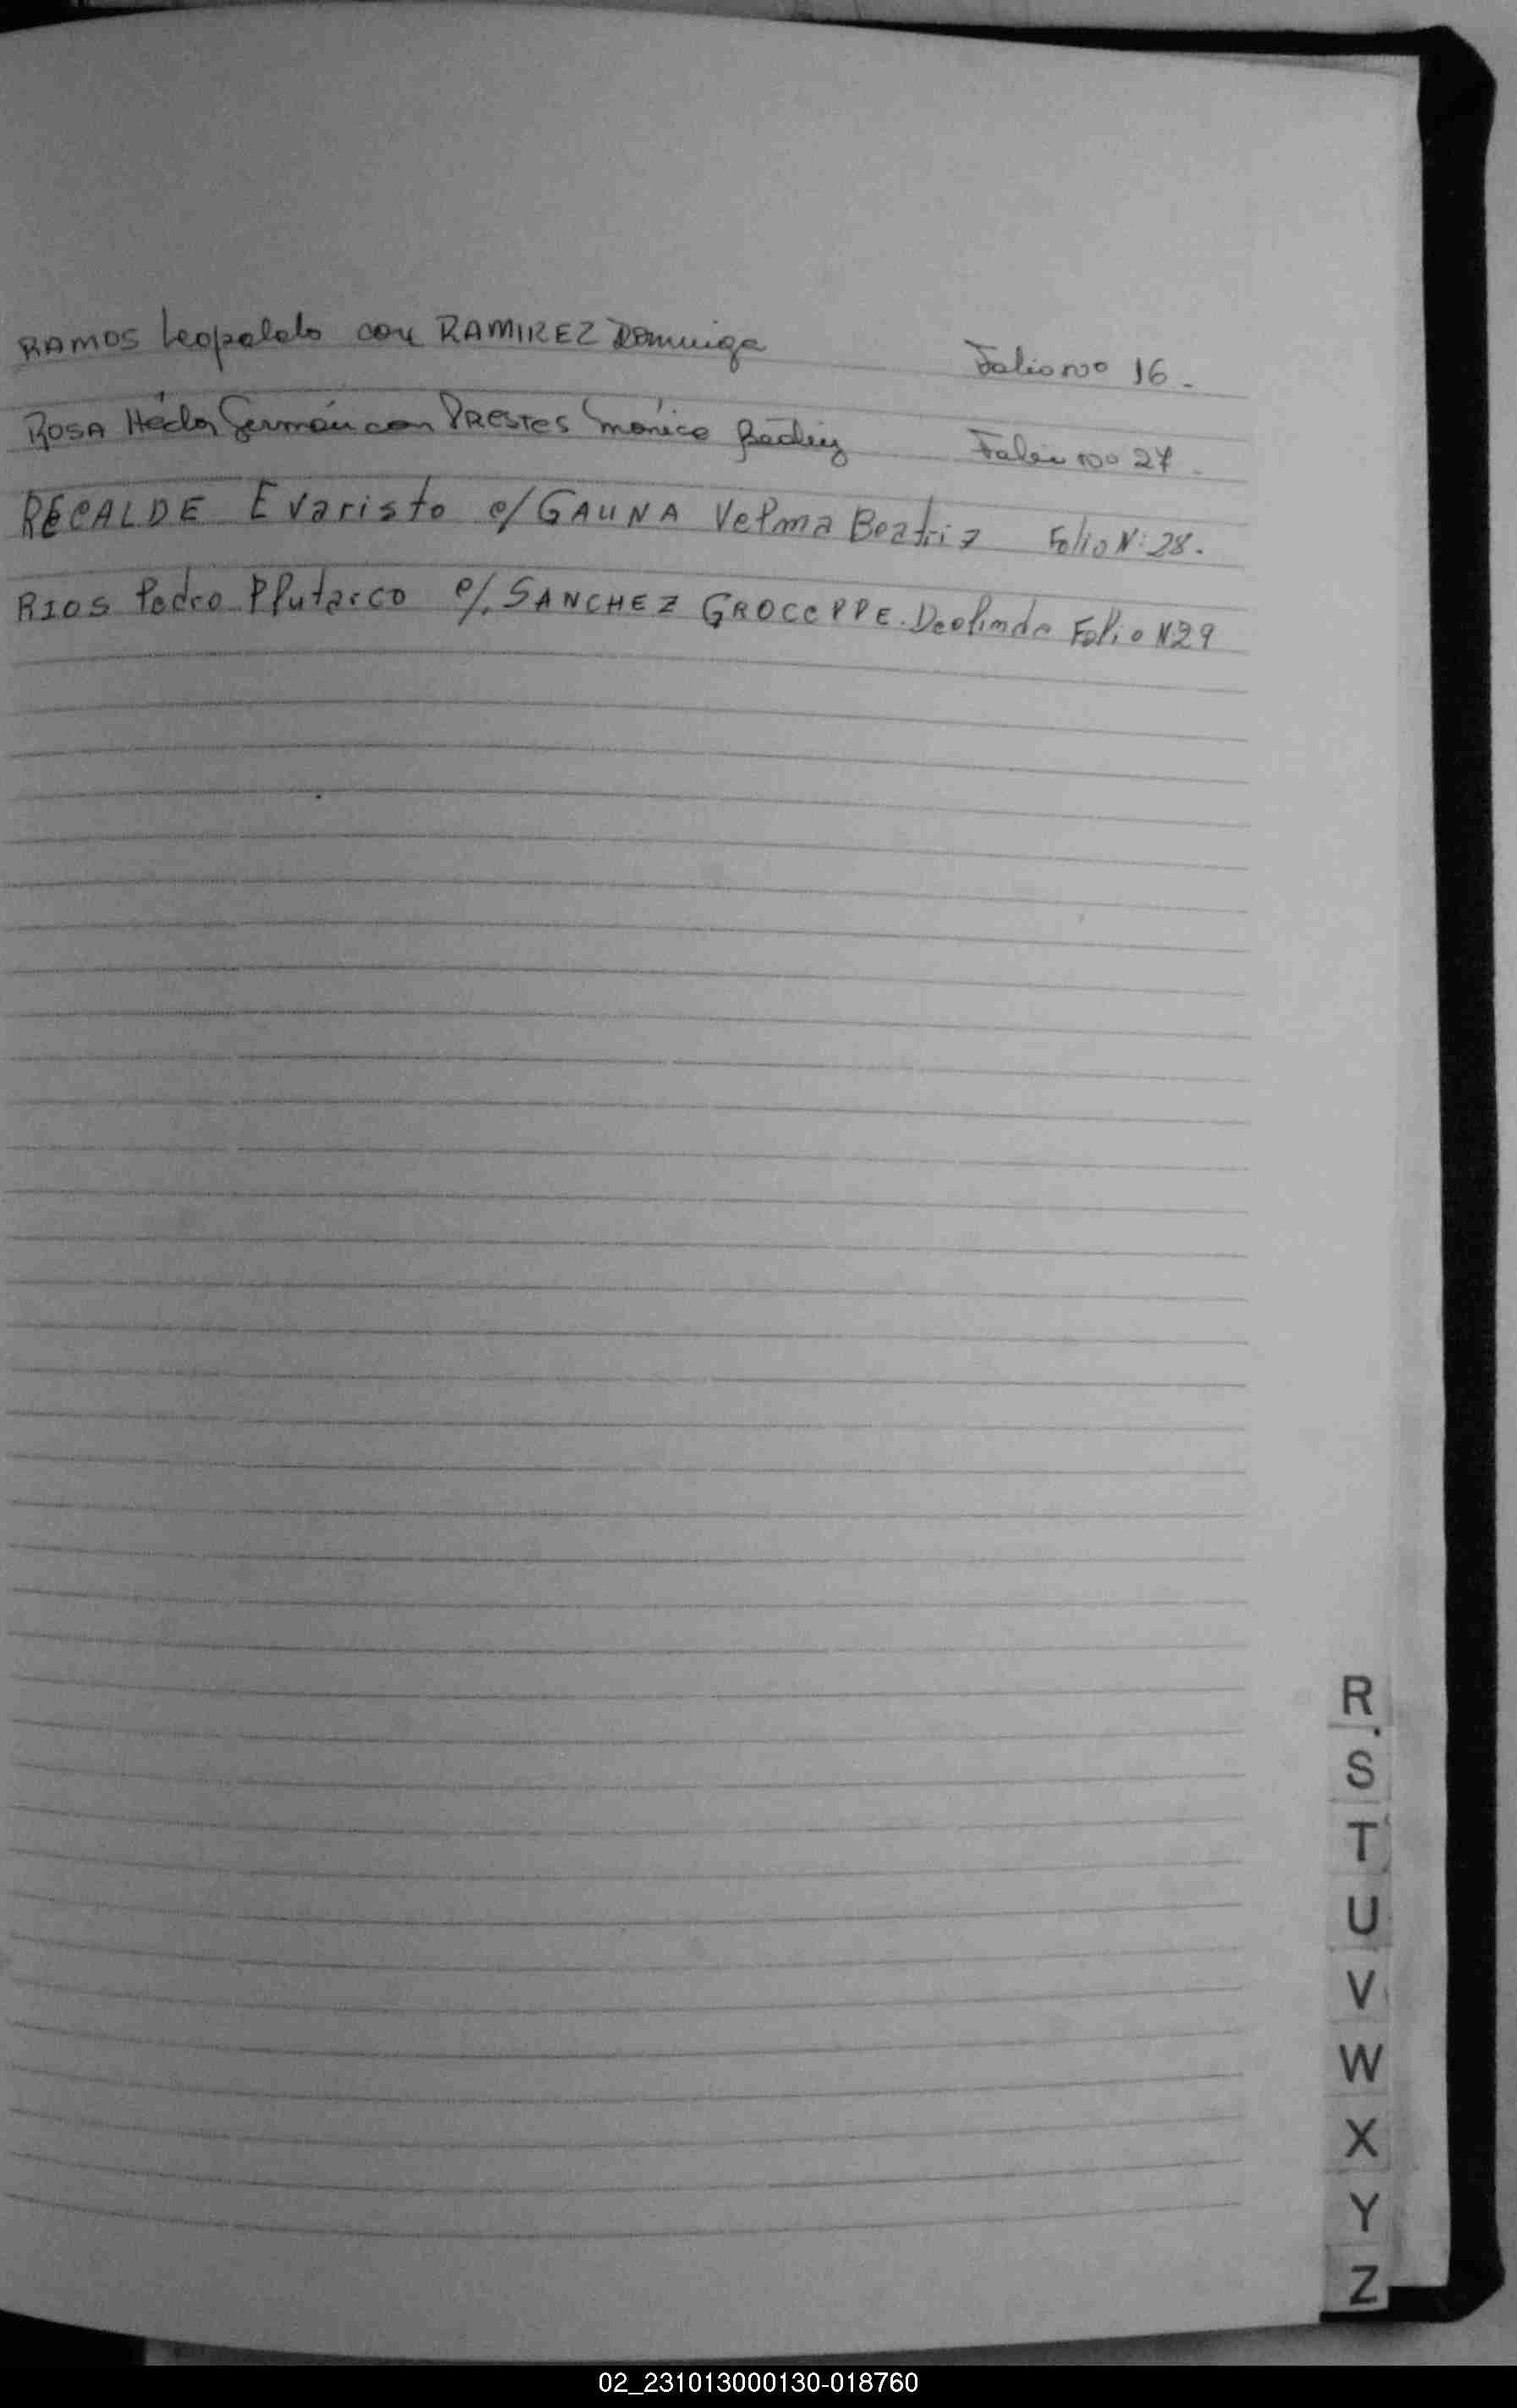 RAMOS Leopoldo con RAMIREZ Dominga Folio no 16.
ROSA Héctor Germán con PRESTES Mónica Beatriz Folio no 27.
RECALDE Evaristo c/ GAUNA Velma Beatriz Folio N: 28.
RIOS Pedro Plutarco c/. SANCHEZ GROCEPPE. Deolinda Folio N29
R
S
T
U
V
W
X
Y
Z
02_231013000130-018760